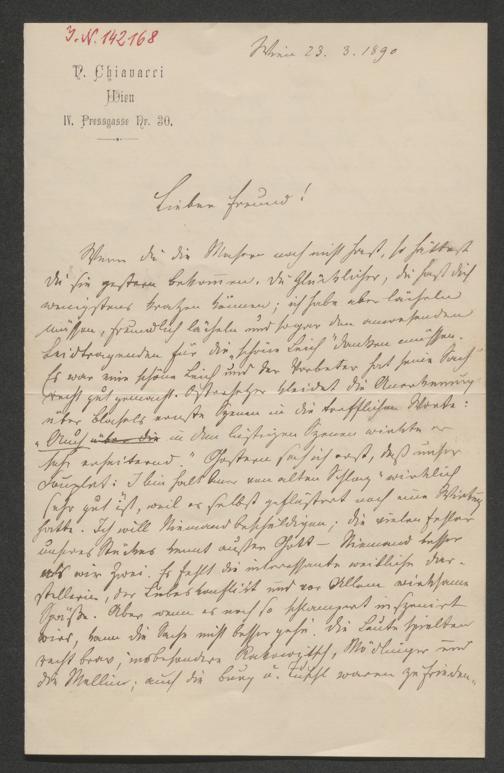 I. N. 142168
V. Chiavacci
Wien
IV. Pressgasse Nr. 30.
Wien 23. 3. 1890
Lieber Freund!
Wenn du die Masern noch nicht hast, so hättest
du sie gestern bekommen. Du Glücklicher, du hast dich
wenigstens kratzen können; ich habe aber lächeln
müssen, freundlich lächeln und sogar den anwesenden
Leidtragenden für die „schöne Leich" danken müssen.
Es war eine schöne Leich und der Vorbeter hat seine Sach
recht gut gemacht. kleidet die Anerkennung
über Blasels ernste Szenen in die trefflichen Worte:
„Auch über die in den lustigen Szenen wirkte er
sehr erheiternd." Gestern sah ich erst, daß unser
Couplet: I bin halt vom alten Schlag" wirklich
sehr gut ist, weil es selbst geflüstert noch eine Wirkung
hatte. Ich will Niemand beschuldigen; die vielen Fehler
unseres Stückes kennt außer Gott – Niemand besser
als wir zwei. Es fehlt die interessante weibliche Dar-
stellerin, der Liebeskonflikt und vor Allem wirksame
Späße. Aber wenn es noch so schlampert inszenirt
wird, kann die Sache nicht besser gehn. Die Leute spielten
recht brav, insbesondere Mödlinger und
die Mellin; auch die Burg u. waren zufrieden-